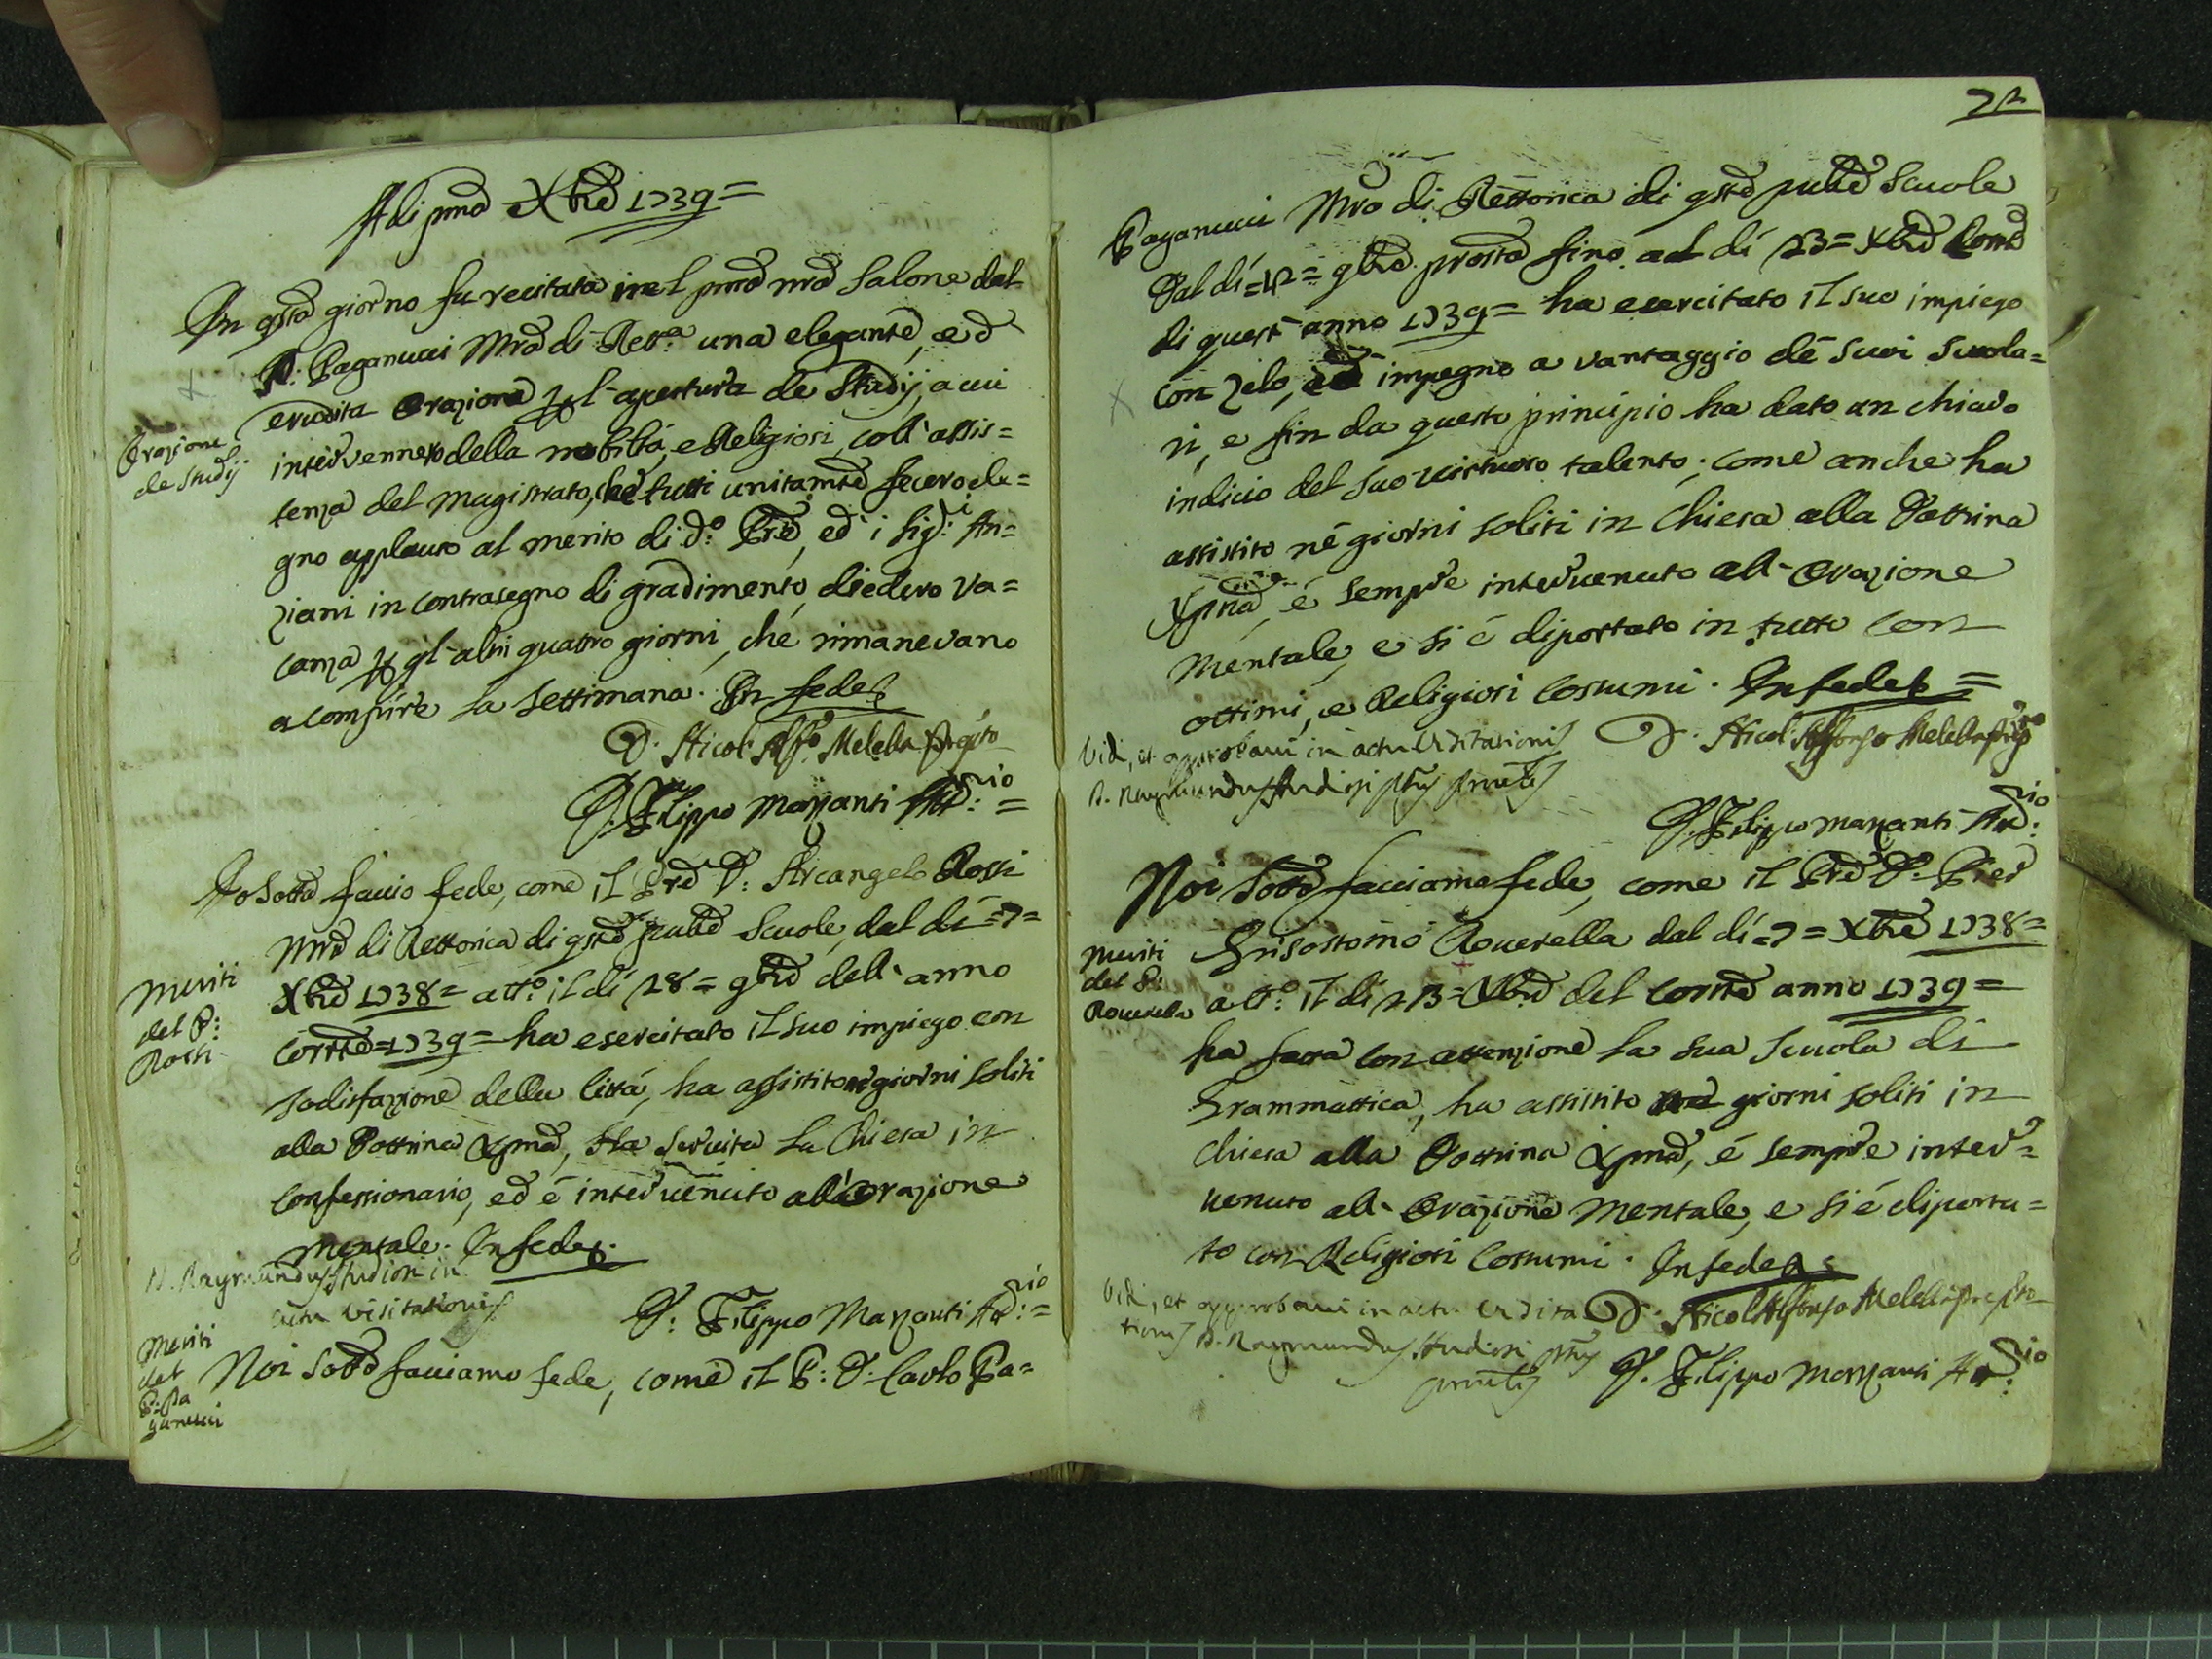 Adi pmo Xbre 1739=
In qsto giorno fu recitata nel pmo nro Salone dal
P: Paganucci Mro di Rettca una elegante, ed
erudita Orazione pl'apertura de Studij, a cui
Orazione
de Studij
intervennero della nobiltà, e Religiosi, coll'assis=
tenza del Magistrato, che tutti unitamte fecero de=
gno applauso al merito di do: Pre, ed i Sigri: An=
ziani in contrasegno di gradimento, diedero va=
canza p gl'altri quattro giorni, che rimanevano
a compire la Settimana. In fede
D. Nicol: Alfo. Melella Prepto
D. Filippo Manzanti Attrio: =
Io Sotto faccio fede, come il Pre D: Arcangelo Rossi
Mro di Rettorica di qste pube Scuole, dal dì =7=
Meriti
del P:
Rossi
Xbre 1738= atto: il dì 28= 9bre dell'anno
corrte=1739= ha esercitato il suo impiego con
sodisfazione della Città, ha assistito ne giorni soliti
alla Dottrina Xpna, Ha servita la Chiesa in
Confessionario, ed è intervenuto all'Orazione
Mentale. In fede.
D. Raymundus Studiosi in
actu Visitationis
D: Filippo Manzanti Attrio: =
Meriti
del
P: Pa
ganucci
Noi Sotti facciamo fede, come il P: D: Carlo Pa=
72
Paganucci Mro di Rettorica di qste pube Scuole
Dal dì =12= 9bre prosso fino al dì 23= Xbre Corrte
di quest'anno 1739= ha esercitato il suo impiego
con zelo, ed impegno a vantaggio de suoi Scola=
ri, e fin da questo principio ha dato un chiaro
indicio del suo virtuoso talento; come anche ha
assistito ne giorni soliti in Chiesa alla Dottrina
Xpna, è sempre intervenuto all'Orazione
Mentale, e si è diportato in tutto con
ottimi, e Religiosi Costumi. In fede =
Vidi, et approbavi in actu Visitationis
D. Raymundus Studiosi
D. Nicol Alfonso Melella
D. Filippo Manzanti Attrio:
Noi Sotti facciamo fede, come il Pre D. Pier
Grisostomo Roverella dal dì =7= Xbre 1738=
Meriti
del P:
Roverella
atto: il dì 23= Xbre del corrte anno 1739=
ha fatta con attenzione la sua Scuola di
Grammattica, ha assistito ne giorni soliti in
Chiesa alla Dottrina Xpna, è sempre inter=
venuto all'Orazione Mentale, e si è diporta=
to con Religiosi Costumi. In fede
Vidi, et approbavi in actu Visita
tionis D. Raymundus Studiosi
D. Nicol Alfonso Melella Prepto
D. Filippo Manzanti Attrio: